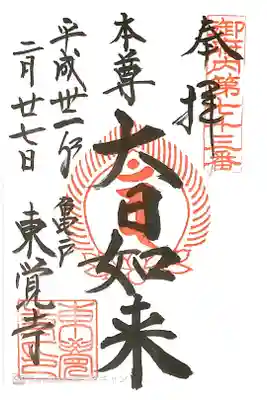 御府内第七十三番
奉拝
本尊
大日如来
亀戸
東覚寺
平成卅一年
二月廿七日